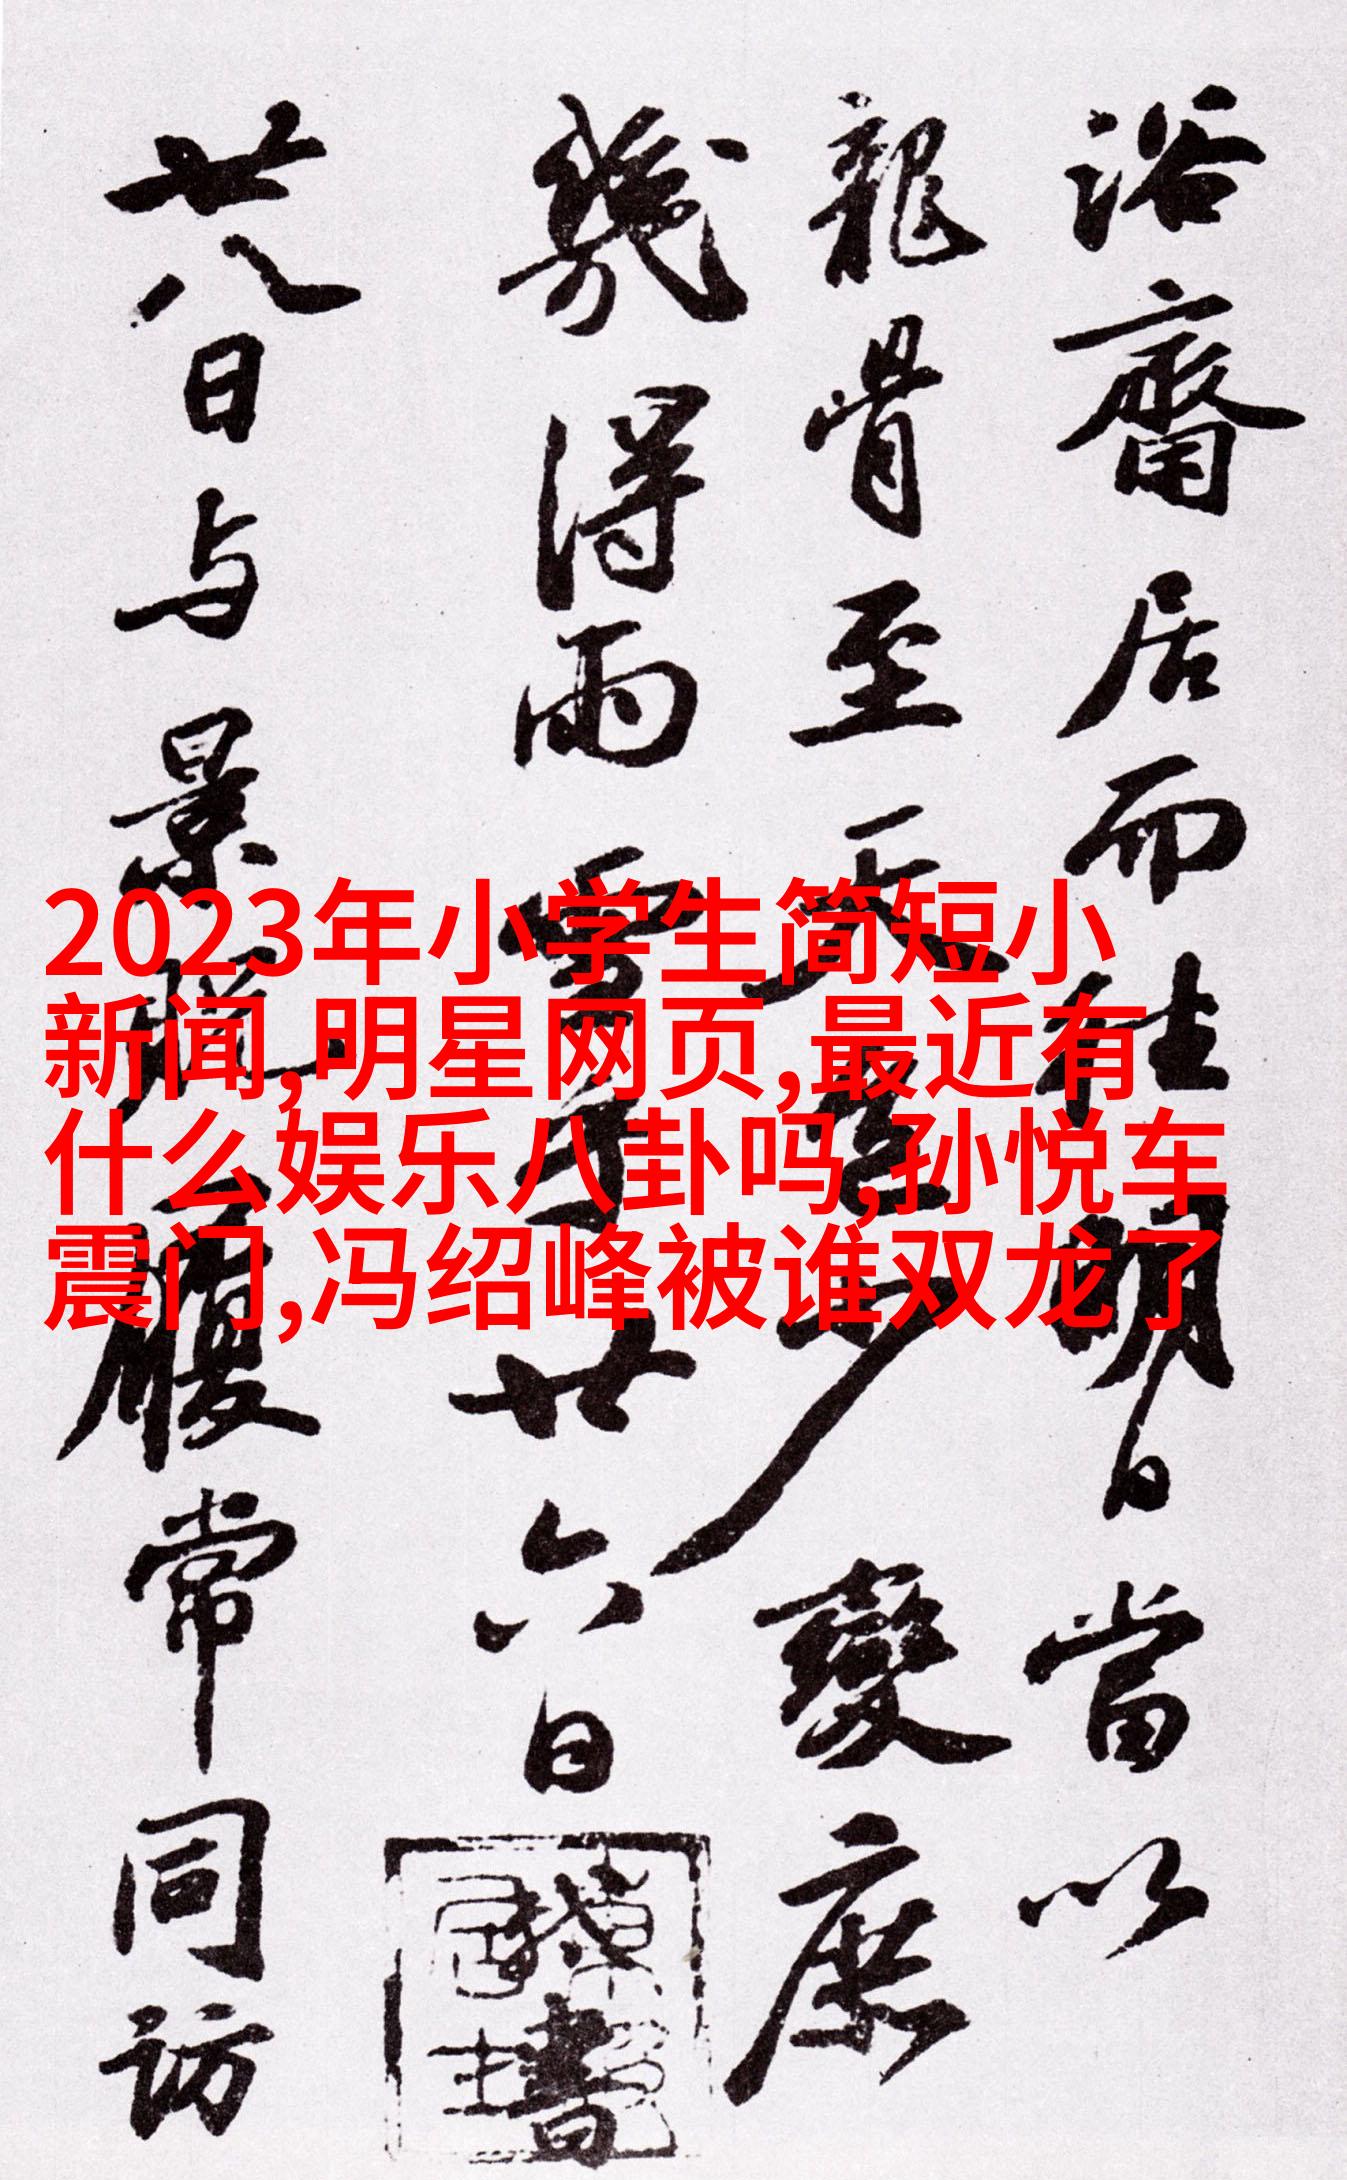 浴齋居而往明日當以
龍骨至天慶少變庶
幾得雨雪乎廿六日
書
廿八日与景聰履常同訪
2023年小学生简短小
新闻,明星网页,最近有
什么娱乐八卦吗,孙悦车
震门,冯绍峰被谁双龙了